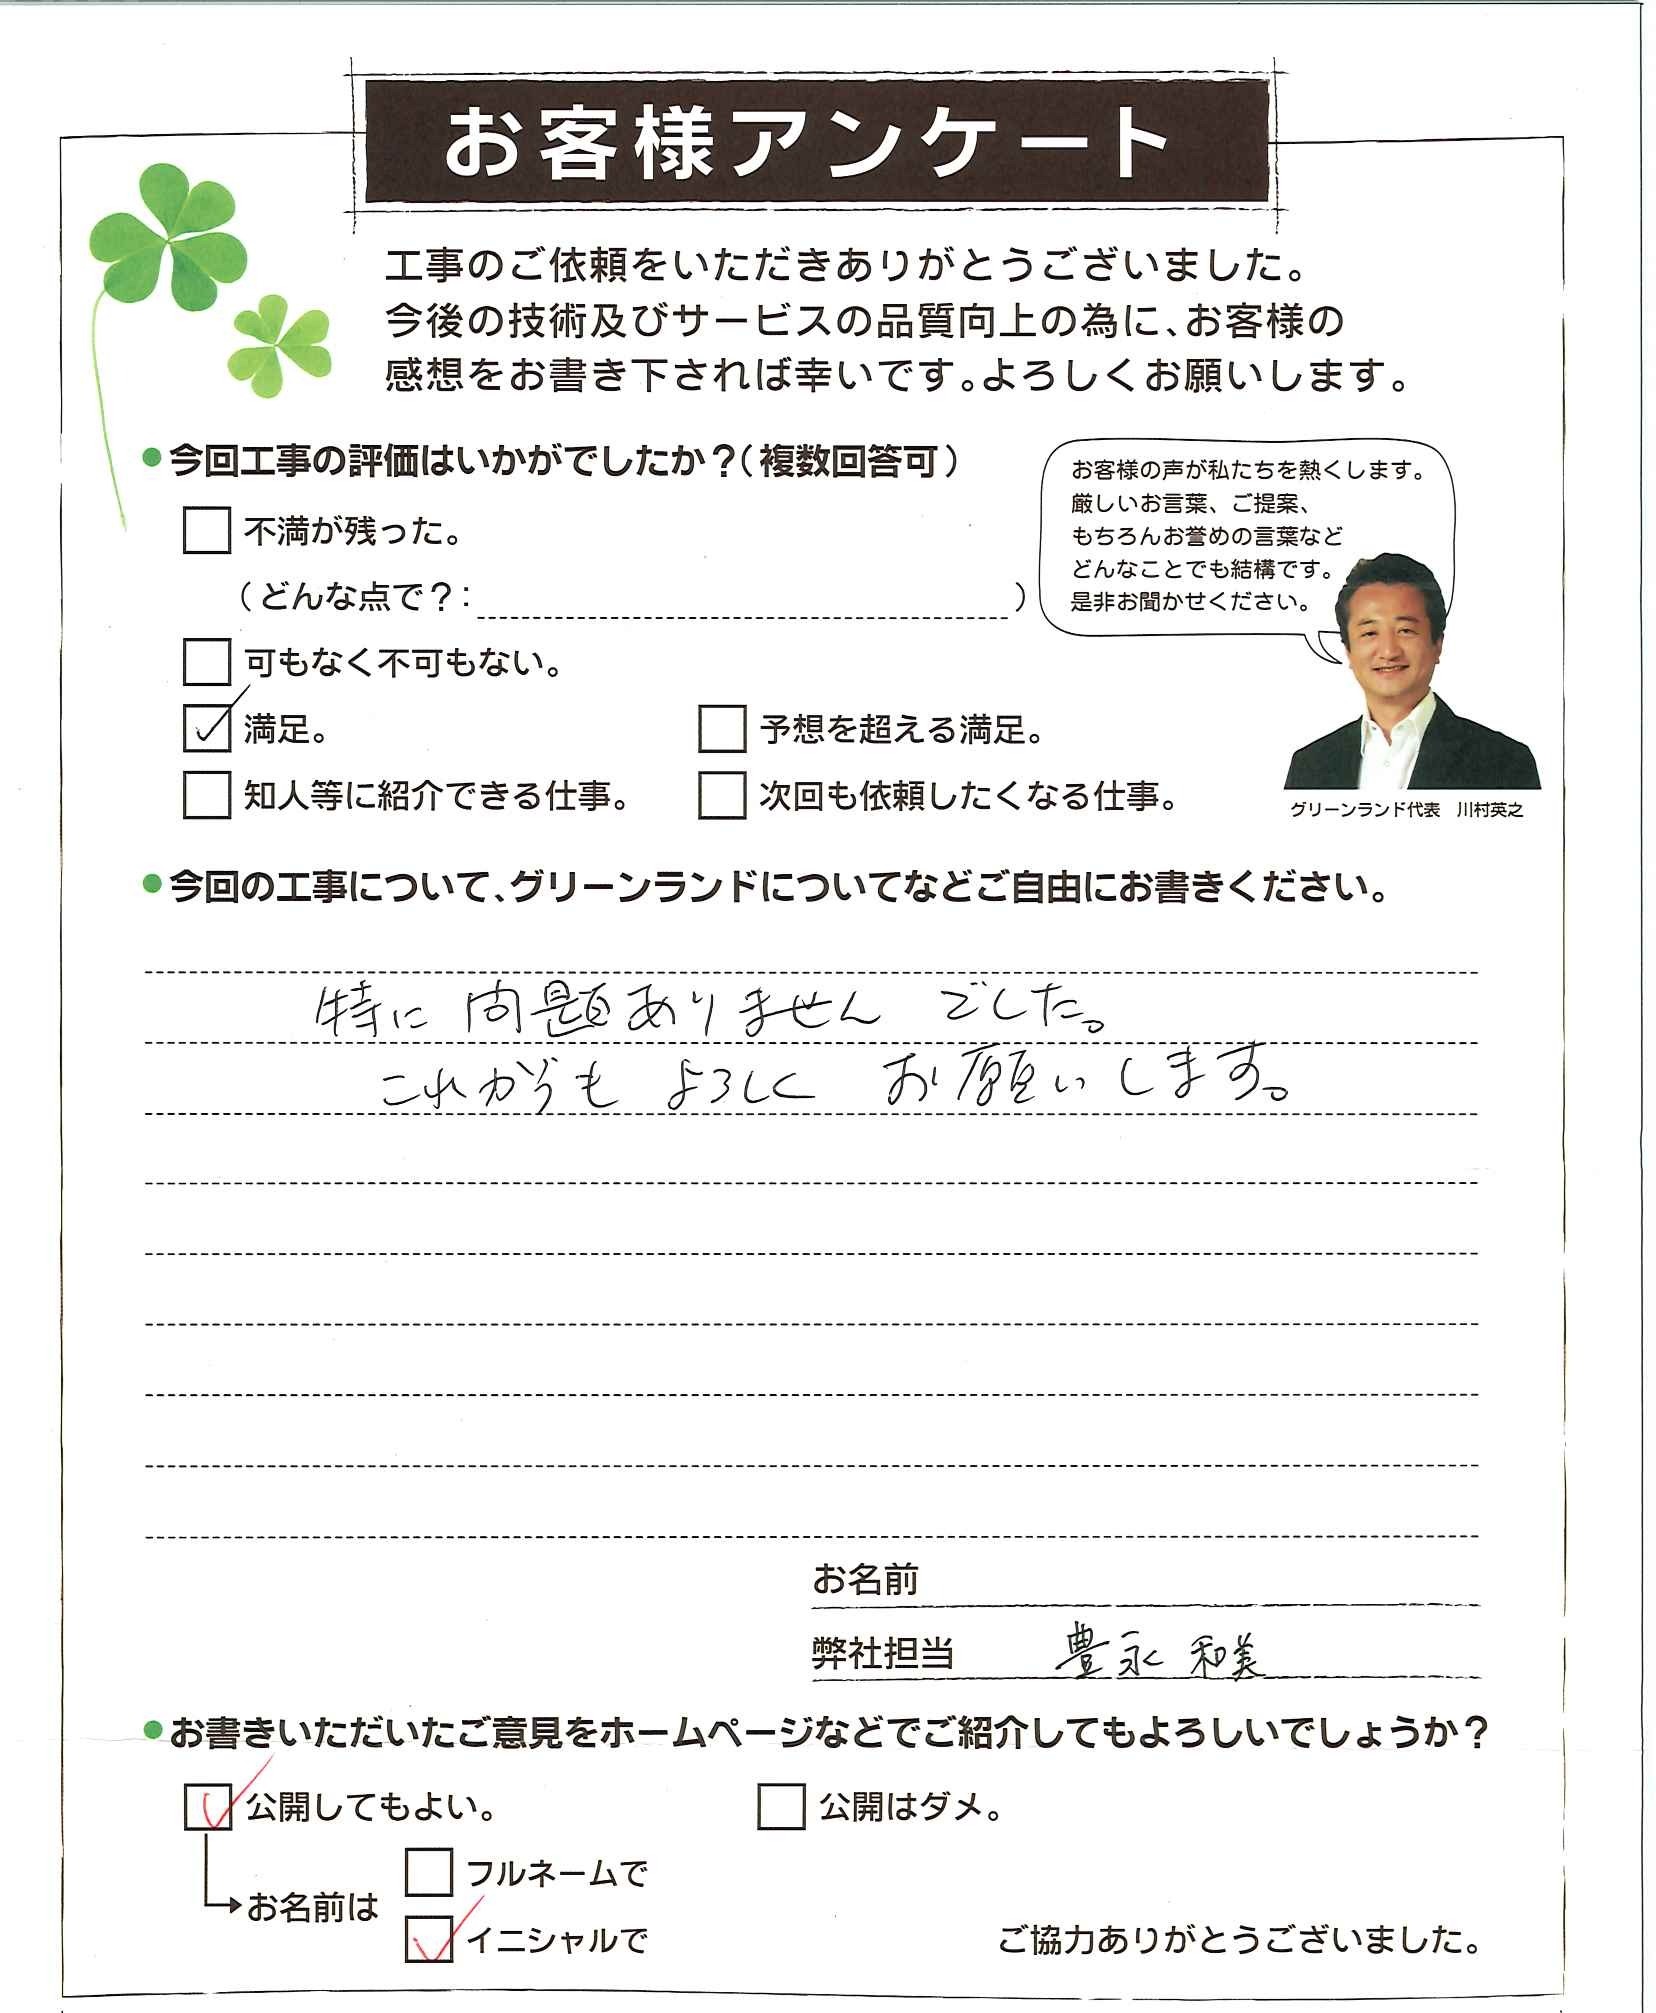 お客様アンケート
工事のご依頼をいただきありがとうございました。
今後の技術及びサービスの品質向上の為に、お客様の
感想をお書き下されば幸いです。よろしくお願いします。
●今回工事の評価はいかがでしたか？（複数回答可）
不満が残った。
（どんな点で？： ）
可もなく不可もない。
満足。
予想を超える満足。
知人等に紹介できる仕事。
次回も依頼したくなる仕事。
お客様の声が私たちを熱くします。
厳しいお言葉、ご提案、
もちろんお誉めの言葉など
どんなことでも結構です。
是非お聞かせください。
グリーンランド代表　川村英之
●今回の工事について、グリーンランドについてなどご自由にお書きください。
特に問題ありませんでした。
これからもよろしくお願いします。
お名前
弊社担当 豊永 和美
●お書きいただいたご意見をホームページなどでご紹介してもよろしいでしょうか？
公開してもよい。
公開はダメ。
お名前は
フルネームで
イニシャルで
ご協力ありがとうございました。